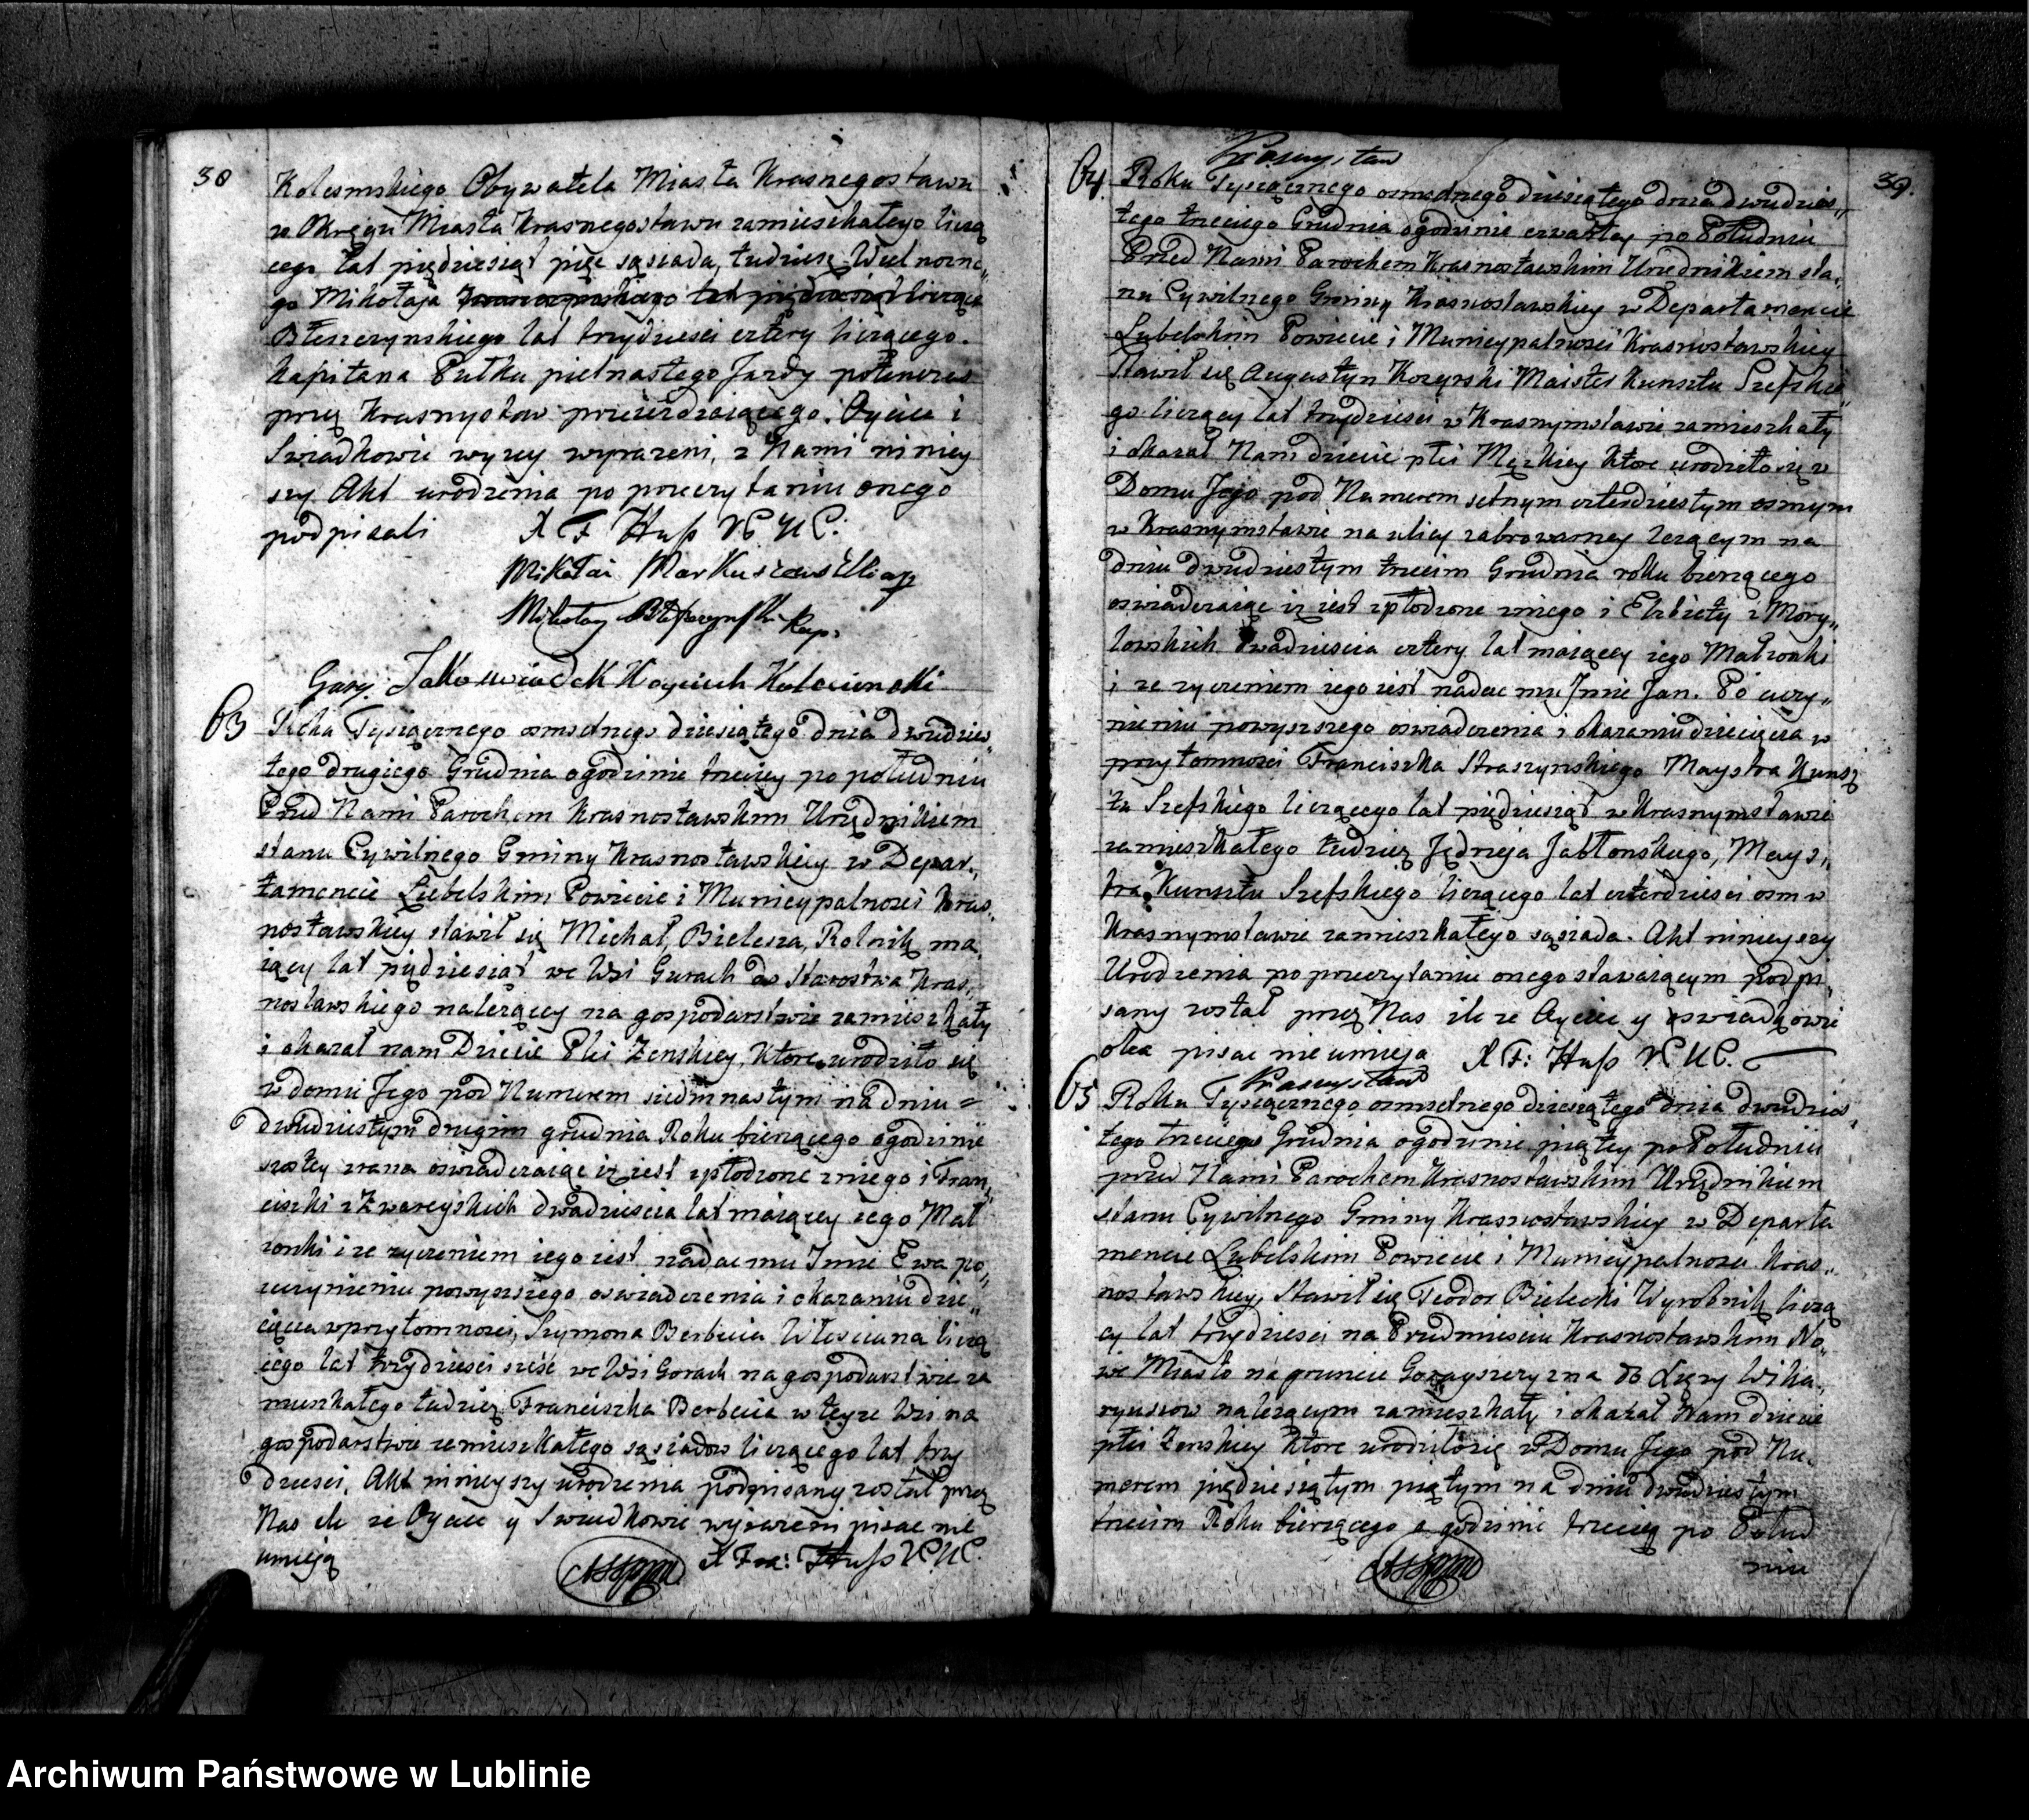 38
Kolesinskiego Obywatela Miasta Krasnegostawu
w Okręgu Miasta Krasnegostawu zamieszkałego liczą
cego lat pięćdziesiąt pięc sąsiada, tudziesz Wielmozne„
go Mikołaja
Błeszczynskiego lat trzydziesci cztery liczącego.
Kapitana Pułku pietnastego Jazdy
przez Krasnystaw przeiezdzaiącego. Oyciec i
Swiadkowie wyzey wyrazeni, z Nami niniey
szy Akt urodzenia po przeczytaniu onego
podpisali X F Huß P U C:
Mikołai Markuszewski
Mikołay Błeszczynski Kap:
Jako swiadek Woyciech Kolesinski
63
Roku Tysiącznego osmsetnego dziesiątego dnia dwudzies„
tego drugiego Grudnia o godzinie trzeciey po południu
Przed Nami Parochem Krasnostawskim Urzędnikiem
stanu Cywilnego Gminy Krasnostawskiey w Depar„
tamencie Lubelskim Powiecie i Municypalnosci Kras„
nostawskiey stawił się Michał Bielesza, Rolnik ma„
iący lat pięćdziesiąt we Wsi Gurach do Starostwa Kras„
nostawskiego nalezącey na gospodarstwie zamieszkały
i okazał nam Dziecie Płci Zenskiey, ktore urodziło się
w domu Jego pod Numerem siedmnastym na dniu
dwudziestym drugim grudnia Roku bierzącego o godzinie
szostey zrana oswiadczaiąc iz iest spłodzone z niego i Fran„
ciszki z dwadziescia lat maiącey iego Mał
zonki i ze zyczeniem iego iest nadac mu Imie Ewa po„
uczynieniu powyzszego oswiadczenia i okazaniu dzie„
cięcia w przytomnosci, Szymona Berbecia Włoscianа liczą
cego lat trzydziesci szesc we Wsi Gorach na gospodarstwie za
mieszkałego tudziez Franciszka Berbecia w teyze Wsi na
gospodarstwie zamieszkałego sąsiadow liczącego lat trzy
dziesci, Akt ninieyszy urodzenia podpisany został przez
Nas ile ze Oyciec y Swiadkowie wyrazeni pisac nie
umieją X Fra: Huß P U C.
39.
Krasnystaw
64.
Roku Tysiącznego osmsetnego dziesiątego dnia dwudzies„
tego trzeciego Grudnia o godzinie czwartey po Południu
Przed Nami Parochem Krasnostawskim Urzednikiem sta„
nu Cywilnego Gminy Krasnostawskiey w Departamencie
Lubelskim Powiecie i Municypalnosci Krasnostawskiey
Stawił się Augustyn Kozyrski Maister Kunsztu Szefskie„
go liczący lat trzydziesci w Krasnymstawie zamieszkały
i okazał Nam dziecie płci Męzkiey ktore urodziło się w
Domu Jego pod Numerem setnym czterdziestym osmym
w Krasnymstawie na ulicy zabrowarney lezącym na
dniu dwudziestym trzecim Grudnia roku bierzącego
oswiadczaiąc iz iest spłodzone z niego i Elzbiety z Mory„
lowskich dwadziescia cztery lat maiącey iego Małzonki
i ze zyczeniem iego iest nadac mu Imie Jan. Po uczy„
nieniu powyzszego oswiadczenia i okazaniu dziecięcia w
przytomnosci Franciszka Straszynskiego Maystra Kunsz
tu Szefskiego liczącego lat pięćdziesiąt w Krasnymstawie
zamieszkałego tudziez Jędrzeja Jabłonskiego, Mays„
tra Kunsztu Szefskiego liczącego lat czterdziesci osm w
Krasnymstawie zamieszkałego sąsiada. Akt ninieyszy
Urodzenia po przeczytaniu onego stawaiącym podpi„
sany został przez Nas ile ze Oyciec y swiadkowie
oba pisac nie umieja X F: Huß P. U C.
Krasnystaw
65
Roku Tysiącznego osmsetnego dziesiątego dnia dwudzies„
tego trzeciego Grudnia o godzinie piątey po Południu
przed Nami Parochem Krasnostawskim Urzędnikiem
stanu Cywilnego Gminy Krasnostawskiey w Departa
mencie Lubelskim Powiecie i Municypalnosci Kras„
nostawskiey, Stawił się Teodor Bielecki Wyrobnik liczą
cy lat trzydziesci na Przedmiesciu Krasnostawskim No„
we Miasto na gruncie do Wika„
ryuszow nalezącym zamieszkały i okazał Nam dziecie
płci Zenskiey ktore urodziło się w Domu Jego pod Nu„
merem pięćdziesiątym piątym na dniu dwudziestym
trzecim Roku bierzącego o godzinie trzeciey po Połud
niu
Archiwum Państwowe w Lublinie